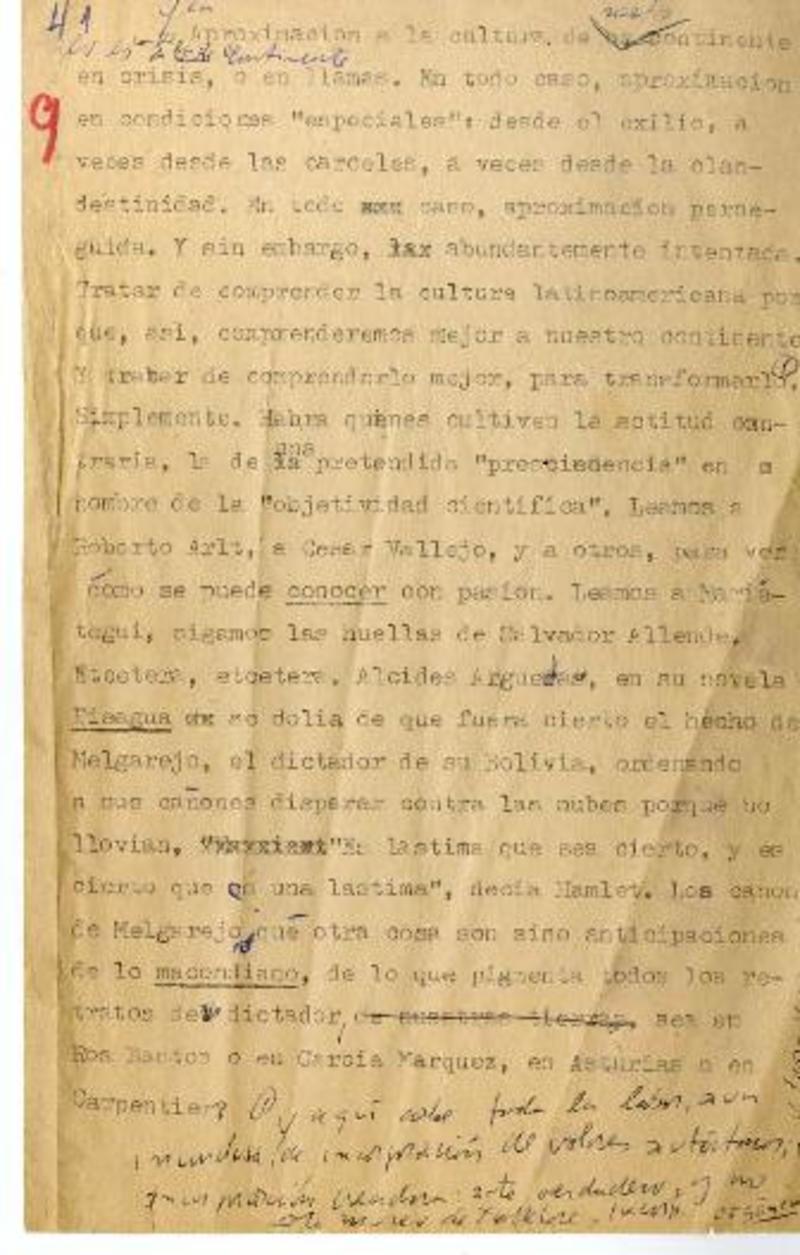 41
9
Aproximacion a la cultura de continente
en crisis, o en llamas. En todo caso, aproximacion
en condiciones "especiales": desde el exilio, a
veces desde las carceles, a veces desde la clan-
destinidad. En todo caso, aproximacion perse-
guida. Y sin embargo, abundantemente intentada.
Tratar de comprender la cultura latinoamericana por
que, asi, comprenderemos mejor a nuestro continente
Y tratar de comprenderlo mejor, para transformarlo.
Simplemente. Habra quienes cultiven la actitud con-
traria, la de una pretendida "prescindencia" en
nombre de la "objetividad cientifica". Leamos a
Roberto Arlt, a Cesar Vallejo, y a otros, para ver
cómo se puede conocer con pasion. Leamos a Mariá-
tegui, sigamos las huellas de Salvador Allende.
Etcetera, etcetera. Alcides Arguedas, en su novela
Pisagua se dolia de que fuera cierto el hecho de
Melgarejo, el dictador de su Bolivia, ordenando
a sus cañones disparar contra las nubes porque no
llovian. "Es lastima que sea cierto, y es
cierto que es una lastima", decia Hamlet. Los cañon
de Melgarejo, qué otra cosa son sino anticipaciones
de lo macondiano, de lo que pigmenta todos los re-
tratos del dictador, sea en
Roa Bastos o en Garcia Marquez, en Asturias o en
Carpentier? y aquí cabe toda la labor, aun
de incorporación de valores autóctonos,
creadora: arte verdadero, y no
de folklore.